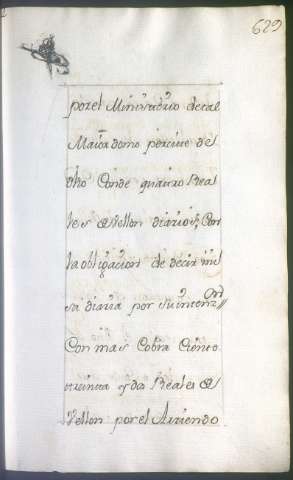 629
por el Ministerio de tal
Maiordomo percive de
dho Conde quatro Real
les de Vellon diarios, Con
la obligacion de decir mi
sa diaria por su intenz.on
Con mas Cobra Ciento
treinta y dos Reales de
Vellon por el Arriendo